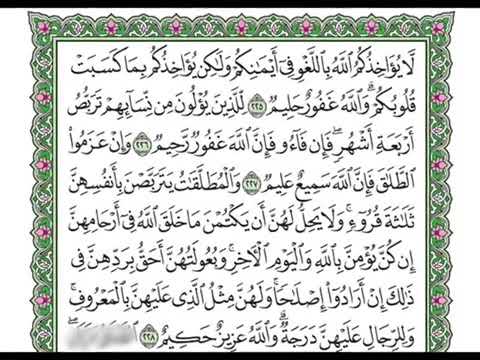 لَّا يُؤَاخِذُكُمُ ٱللَّهُ بِٱللَّغْوِ فِىٓ أَيْمَـٰنِكُمْ وَلَـٰكِن يُؤَاخِذُكُم بِمَا كَسَبَتْ
قُلُوبُكُمْ ۗ وَٱللَّهُ غَفُورٌ حَلِيمٌ ﴿٢٢٥﴾ لِّلَّذِينَ يُؤْلُونَ مِن نِّسَآئِهِمْ تَرَبُّصُ
أَرْبَعَةِ أَشْهُرٍ ۖ فَإِن فَآءُو فَإِنَّ ٱللَّهَ غَفُورٌ رَّحِيمٌ ﴿٢٢٦﴾ وَإِنْ عَزَمُوا۟
ٱلطَّلَـٰقَ فَإِنَّ ٱللَّهَ سَمِيعٌ عَلِيمٌ ﴿٢٢٧﴾ وَٱلْمُطَلَّقَـٰتُ يَتَرَبَّصْنَ بِأَنفُسِهِنَّ
ثَلَـٰثَةَ قُرُوٓءٍ ۚ وَلَا يَحِلُّ لَهُنَّ أَن يَكْتُمْنَ مَا خَلَقَ ٱللَّهُ فِىٓ أَرْحَامِهِنَّ
إِن كُنَّ يُؤْمِنَّ بِٱللَّهِ وَٱلْيَوْمِ ٱلْـَٔاخِرِ ۚ وَبُعُولَتُهُنَّ أَحَقُّ بِرَدِّهِنَّ فِى
ذَٰلِكَ إِنْ أَرَادُوٓا۟ إِصْلَـٰحًا ۚ وَلَهُنَّ مِثْلُ ٱلَّذِى عَلَيْهِنَّ بِٱلْمَعْرُوفِ ۚ
وَلِلرِّجَالِ عَلَيْهِنَّ دَرَجَةٌ ۗ وَٱللَّهُ عَزِيزٌ حَكِيمٌ ﴿٢٢٨﴾